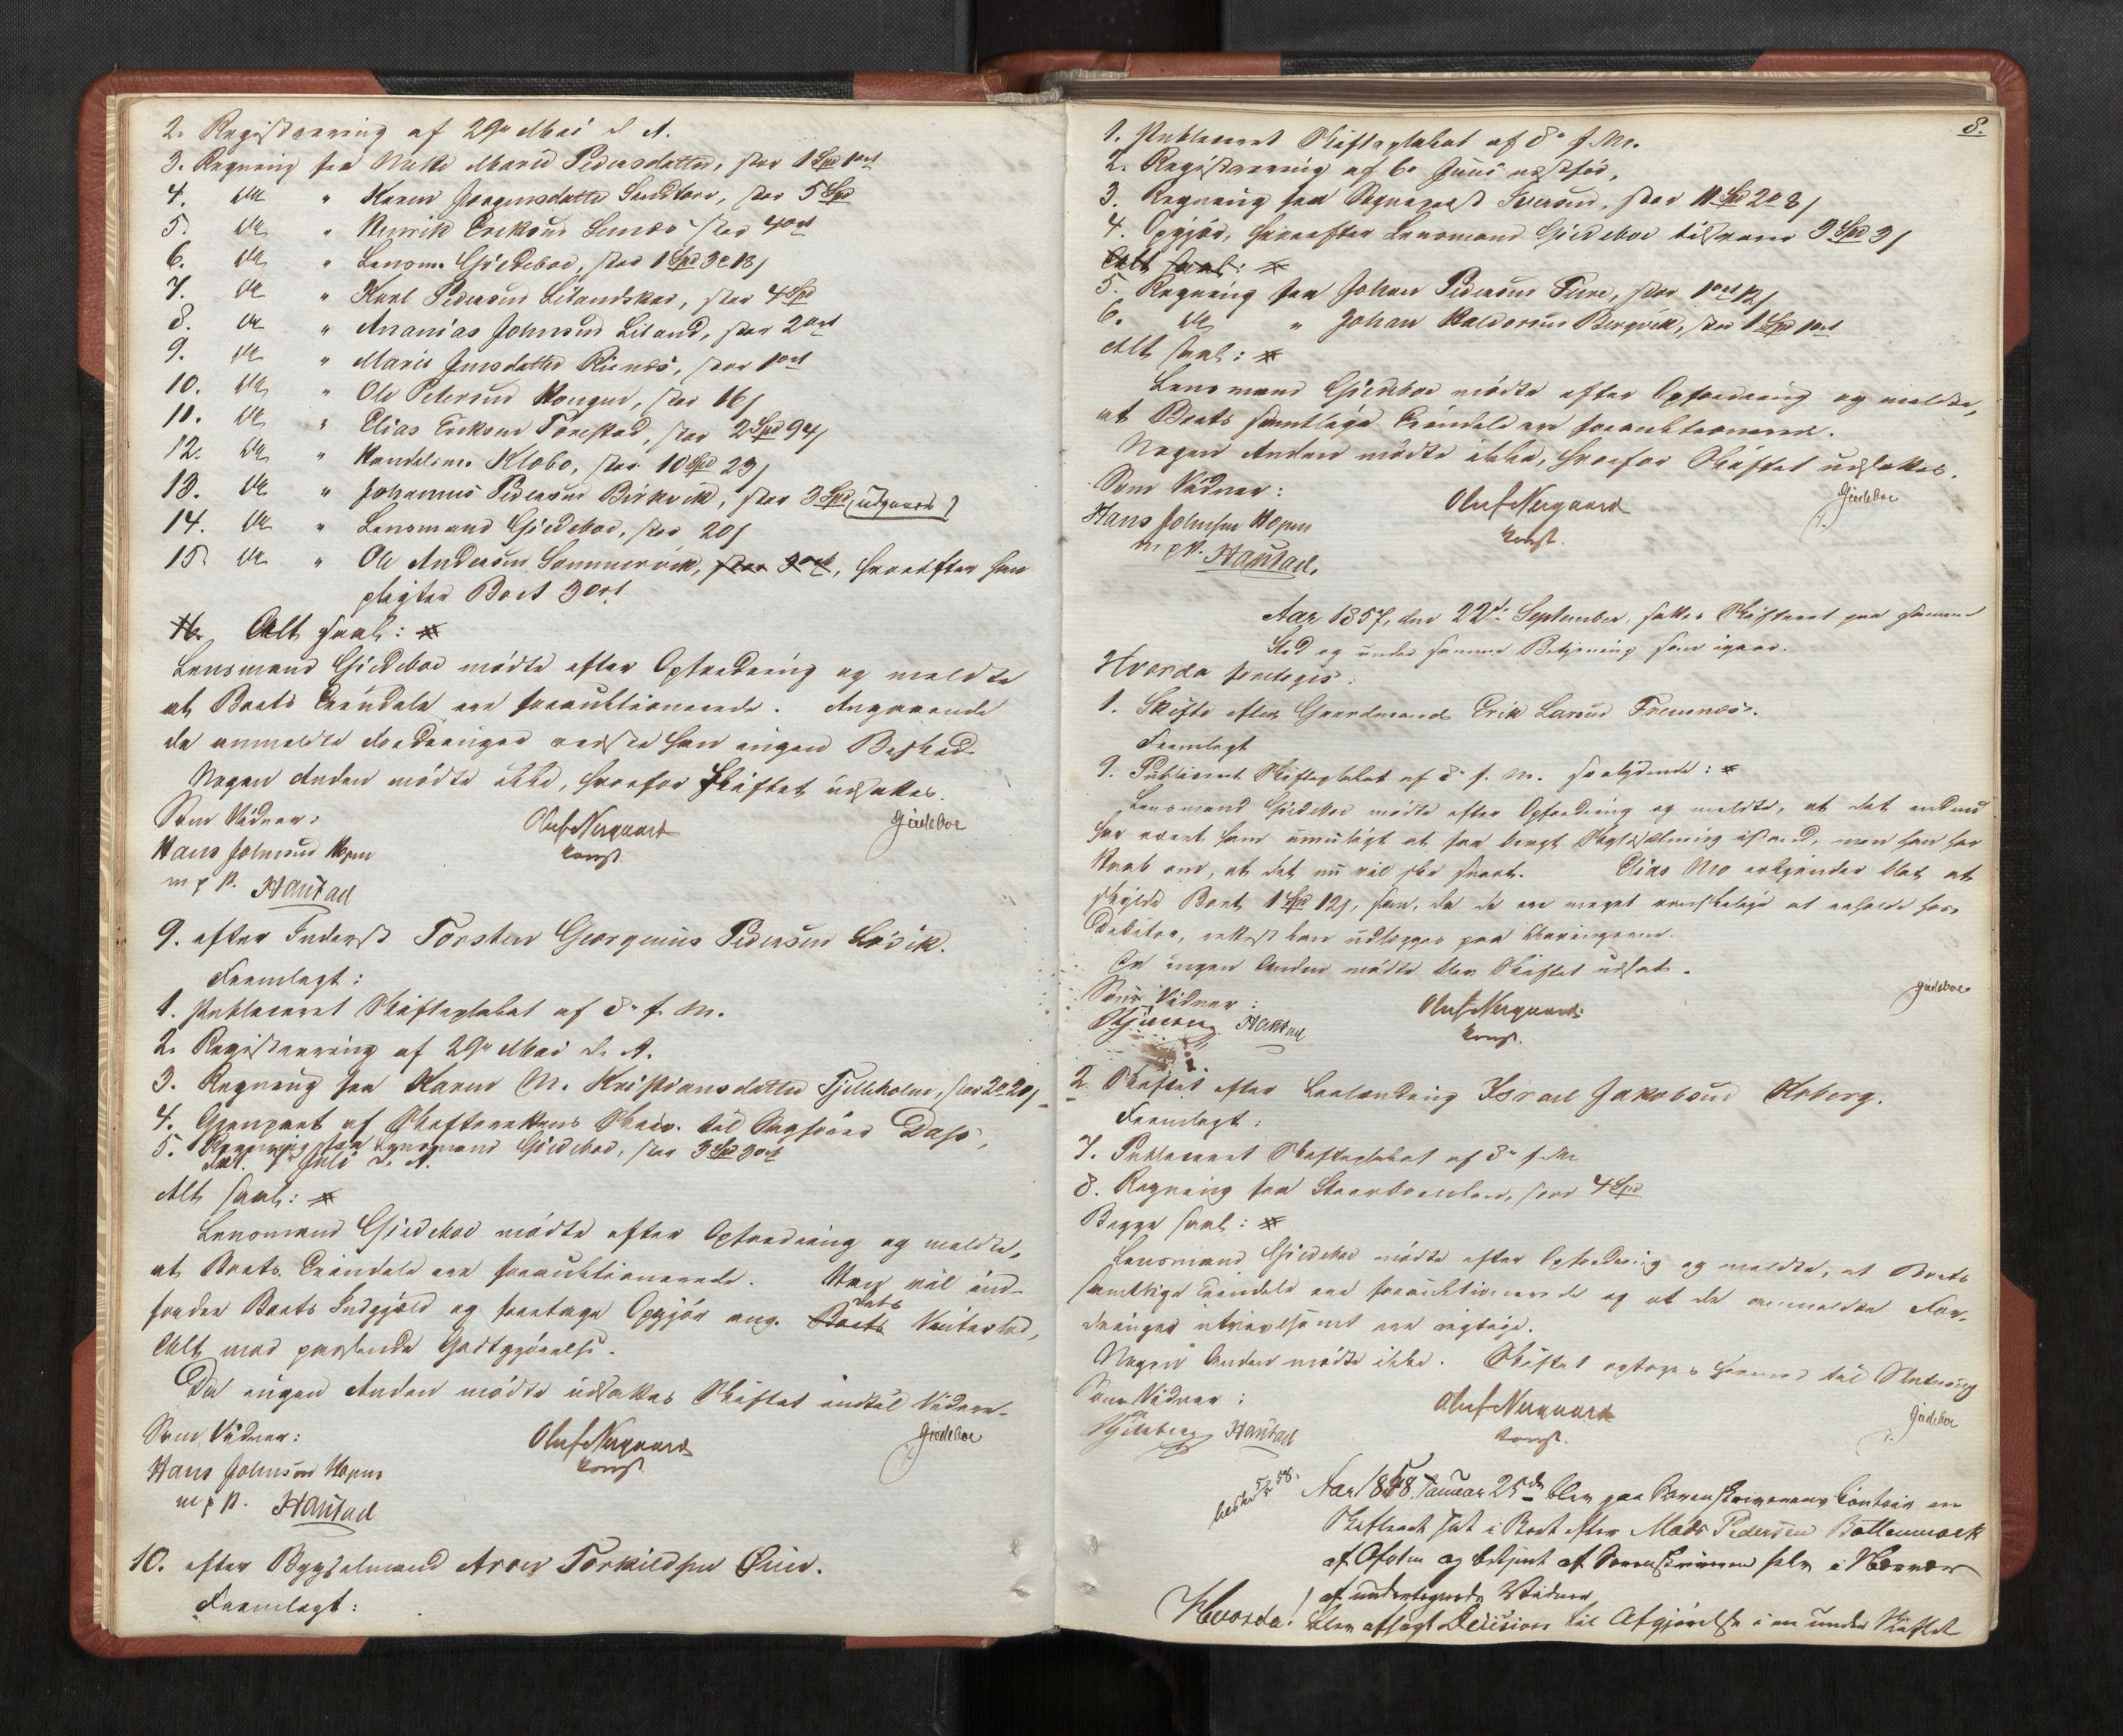 2. Registrering af 29de Mai d. A.
3. Regning fra Maria Pedersdatter, stor 1 Spd 1 ort
4. do " Karen Jørgensdatter Sundbro, stor 5 Spd
5. do " Henrik Eriksen Sunds stor 4 ort
6. do " Lensm. Gjedeboe, stor 1 Spd 3 o 18 s
7. do " Karl Pedersen Lilandskar, stor 4 Spd
8. do " Ananias Johnsen Liland, stor 2 ort
9. do " Marie Jensdatter, stor 1 ort
10. do " Ole Petersen Kongsv, stor 16 s
11. do " Elias Eriksen Forestad, stor 2 Spd 94 s
12. do " Handelsm. Klæbo, stor 10 Spd 23 s
13. do " Johannes Pedersen Birkvik, stor 3 Spd (udgaaer)
14. do " Lensmand Gjedeboe, stor 20 s
15. do " Ole Andersen Sommervik, stor 3 ort, hvorefter han
pligter Boet 3 ort
Alt saal:
Lensmand Gjedeboe mødte efter Opfordring og meldte
at Boets Eiendele ere forauktionerede. Angaaende
de anmeldte Fordringer vidste han ingen Besked.
Nogen Anden mødte ikke, hvorfor Skiftet udsattes.
Som Vidner:
Oluf Nergaard
Gjedeboe
Hans Johnsen Kopen
const.
m. p. P. Hanstad
9. efter Inderst Torsten Georgenius Pedersen Løvik.
Fremlagt:
1. Publiceret Skifteplakat af 8de f. M.
2. Registrering af 29de Mai d. A.
3. Regning fra Karen M. Kristiansdatter Tjelleholm, stor 2 o 20 s
4. Gjenpart af Skifterettens Skriv. til Sagfører Dass,
5. Regning fra Lensmand Gjedeboe, stor 3 Spd 3 ort
dat. Juli d. A.
Alt saal:
Lensmand Gjedeboe mødte efter Opfordring og meldte,
at Boets Eiendele ere forauktionerede. Han vil ind-
fordre Boets Indgjæld og foretage Opgjør ang. Boets dets Vinterlod,
Alt mod passende Godtgjørelse.
Da ingen Anden mødte udsattes Skiftet indtil Videre.
Som Vidner:
Oluf Nergaard
Gjedeboe
Hans Johnson Kopen
const
m. p. P. Hanstad
10. efter Bygselmand Aron Torkildsen
Fremlagt:
8.
1. Publiceret Skifteplakat af 8de f. M.
2. Registrering af 6te Juni
3. Regning fra Sogneprest Iversen, stor 11 Spd 2 o 8 s
4. Opgjør, hvorefter Lensmand Gjedeboe tilsvarer 3 Spd 3 s
Alt saal:
5. Regning fra Johan Pedersen, stor 1 ort 12 s
6. do " Johan Haldorsen Bergvik, stor 1 Spd 1 ort
Alt saal:
Lensmand Gjedeboe mødte efter Opfordring og meldte,
at Boets samtlige Eiendele ere forauktionerede.
Nogen Anden mødte ikke, hvorfor Skiftet udsattes.
Som Vidner:
Oluf Nergaard
Gjedeboe
Hans Johnsen Kopen
const.
m. p. P. Hanstad.
Aar 1857, den 22de September, sattes Skifteret paa samme
Sted og under samme Betjening som igaar.
Hvorda foretoges:
1. Skifte efter Gaardmand Erik Larsen Fremnæs.
Fremlagt
9. Publiceret Skifteplakat af 8de f. M. saalydende:
Lensmand Gjedeboe mødte efter Opfordring og meldte, at det endnu
har været ham umuligt at faa bragt istand, men han har
Haab om, at det nu vil ske snart. Elias Mo erkjender blot at
skylde Boet 1 Spd 12 s, som, da de ere meget vanskelige at erholde hos
Debitor, rettest bør udlægges paa Arvingerne.
Da ingen Anden mødte blev Skiftet udsat.
Som Vidner:
Oluf Nergaard
Gjedeboe
Hanstad
const.
2. Skiftet efter Leilænding Israel Jakobsen Aberg.
Fremlagt:
7. Publiceret Skifteplakat af 8de f. M.
8. Regning fra, stor 4 Spd
Begge saal:
Lensmand Gjedeboe mødte efter Opfordring og meldte, at Boets
samtlige Eiendele ere forauktionerede og at de anmeldte For-
dringer utvivlsomt ere rigtige.
Nogen Anden mødte ikke. Skiftet optoges hermed til Slutning
Som Vidner:
Oluf Nergaard
Gjedeboe
Hanstad
const.
Aar 1858, Januar 25de blev paa Sorenskriverens Contoir en
Skifteret sat i Boet efter Mads Pedersen Bottenmark
af Ofoten og betjent af Sorenskriveren selv i Nærvær
af undertegnede Vidner,
Hvorda! blev afsagt Decision til Afgjørelse i en under Skiftet